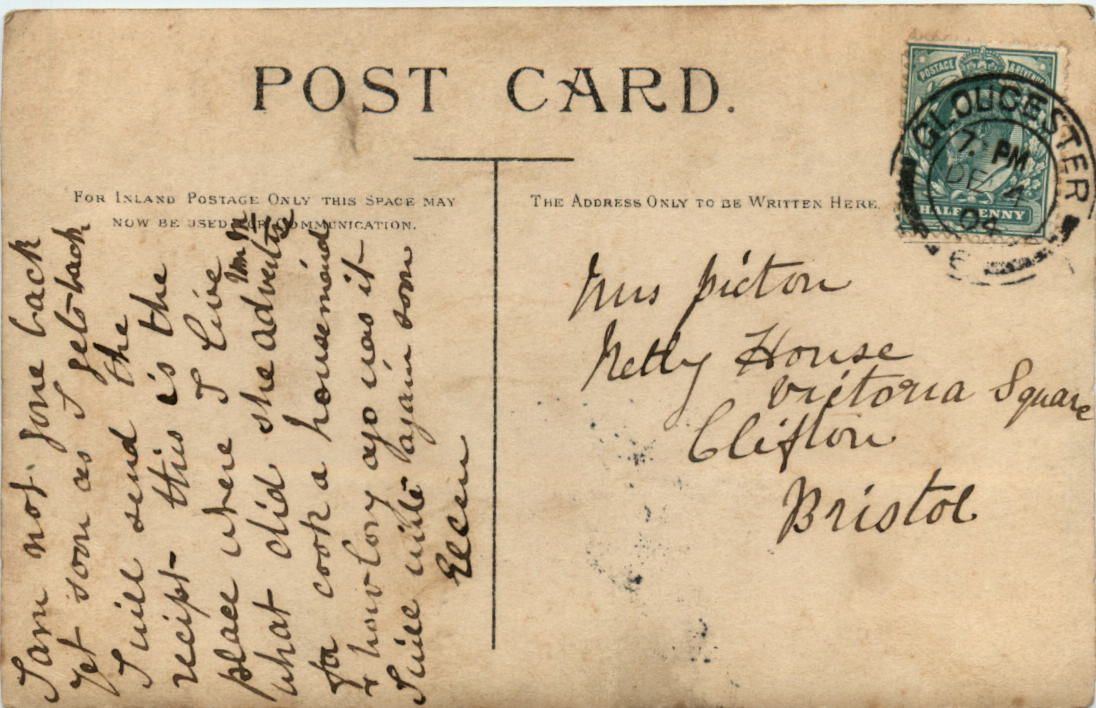 POST CARD.
FOR INLAND POSTAGE ONLY THIS SPACE MAY
NOW BE USED FOR COMMUNICATION.
THE ADDRESS ONLY TO BE WRITTEN HERE.
POSTAGE & REVENUE
HALFPENNY
GLOUCESTER
7. PM
DE 4
04
6
I am not gone back
yet soon as I get back
I will send the
recipt - this is the
place where I live
what did she advertise
for cook a housemaid
& how long ago was it
I will write again soon
Ellen
Mrs Picton
Netly House
Victoria Square
Clifton
Bristol